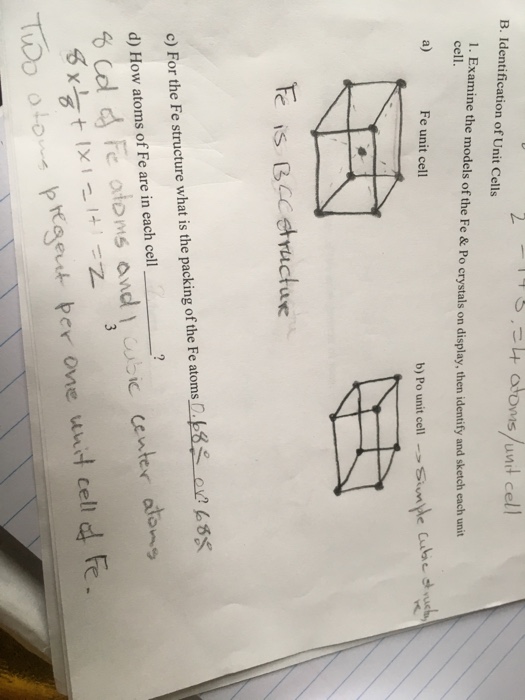 = 4 atoms/unit cell
B. Identification of Unit Cells
1. Examine the models of the Fe & Po crystals on display, then identify and sketch each unit
cell.
a) Fe unit cell
b) Po unit cell -> Simple Cubic structure
Fe is BCC structure
c) For the Fe structure what is the packing of the Fe atoms 0.68% or? 68%
d) How atoms of Fe are in each cell ?
8 Cd of Fe atoms and 1 cubic center atoms
8 x 1/8 + 1x1 = 1+1 = 2
3
Two atoms present per one unit cell of Fe.